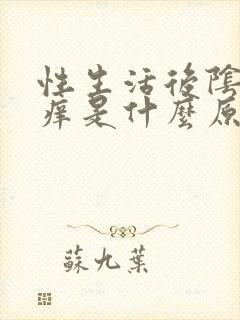 性生活後陰
痒是什麼原
蘇九葉